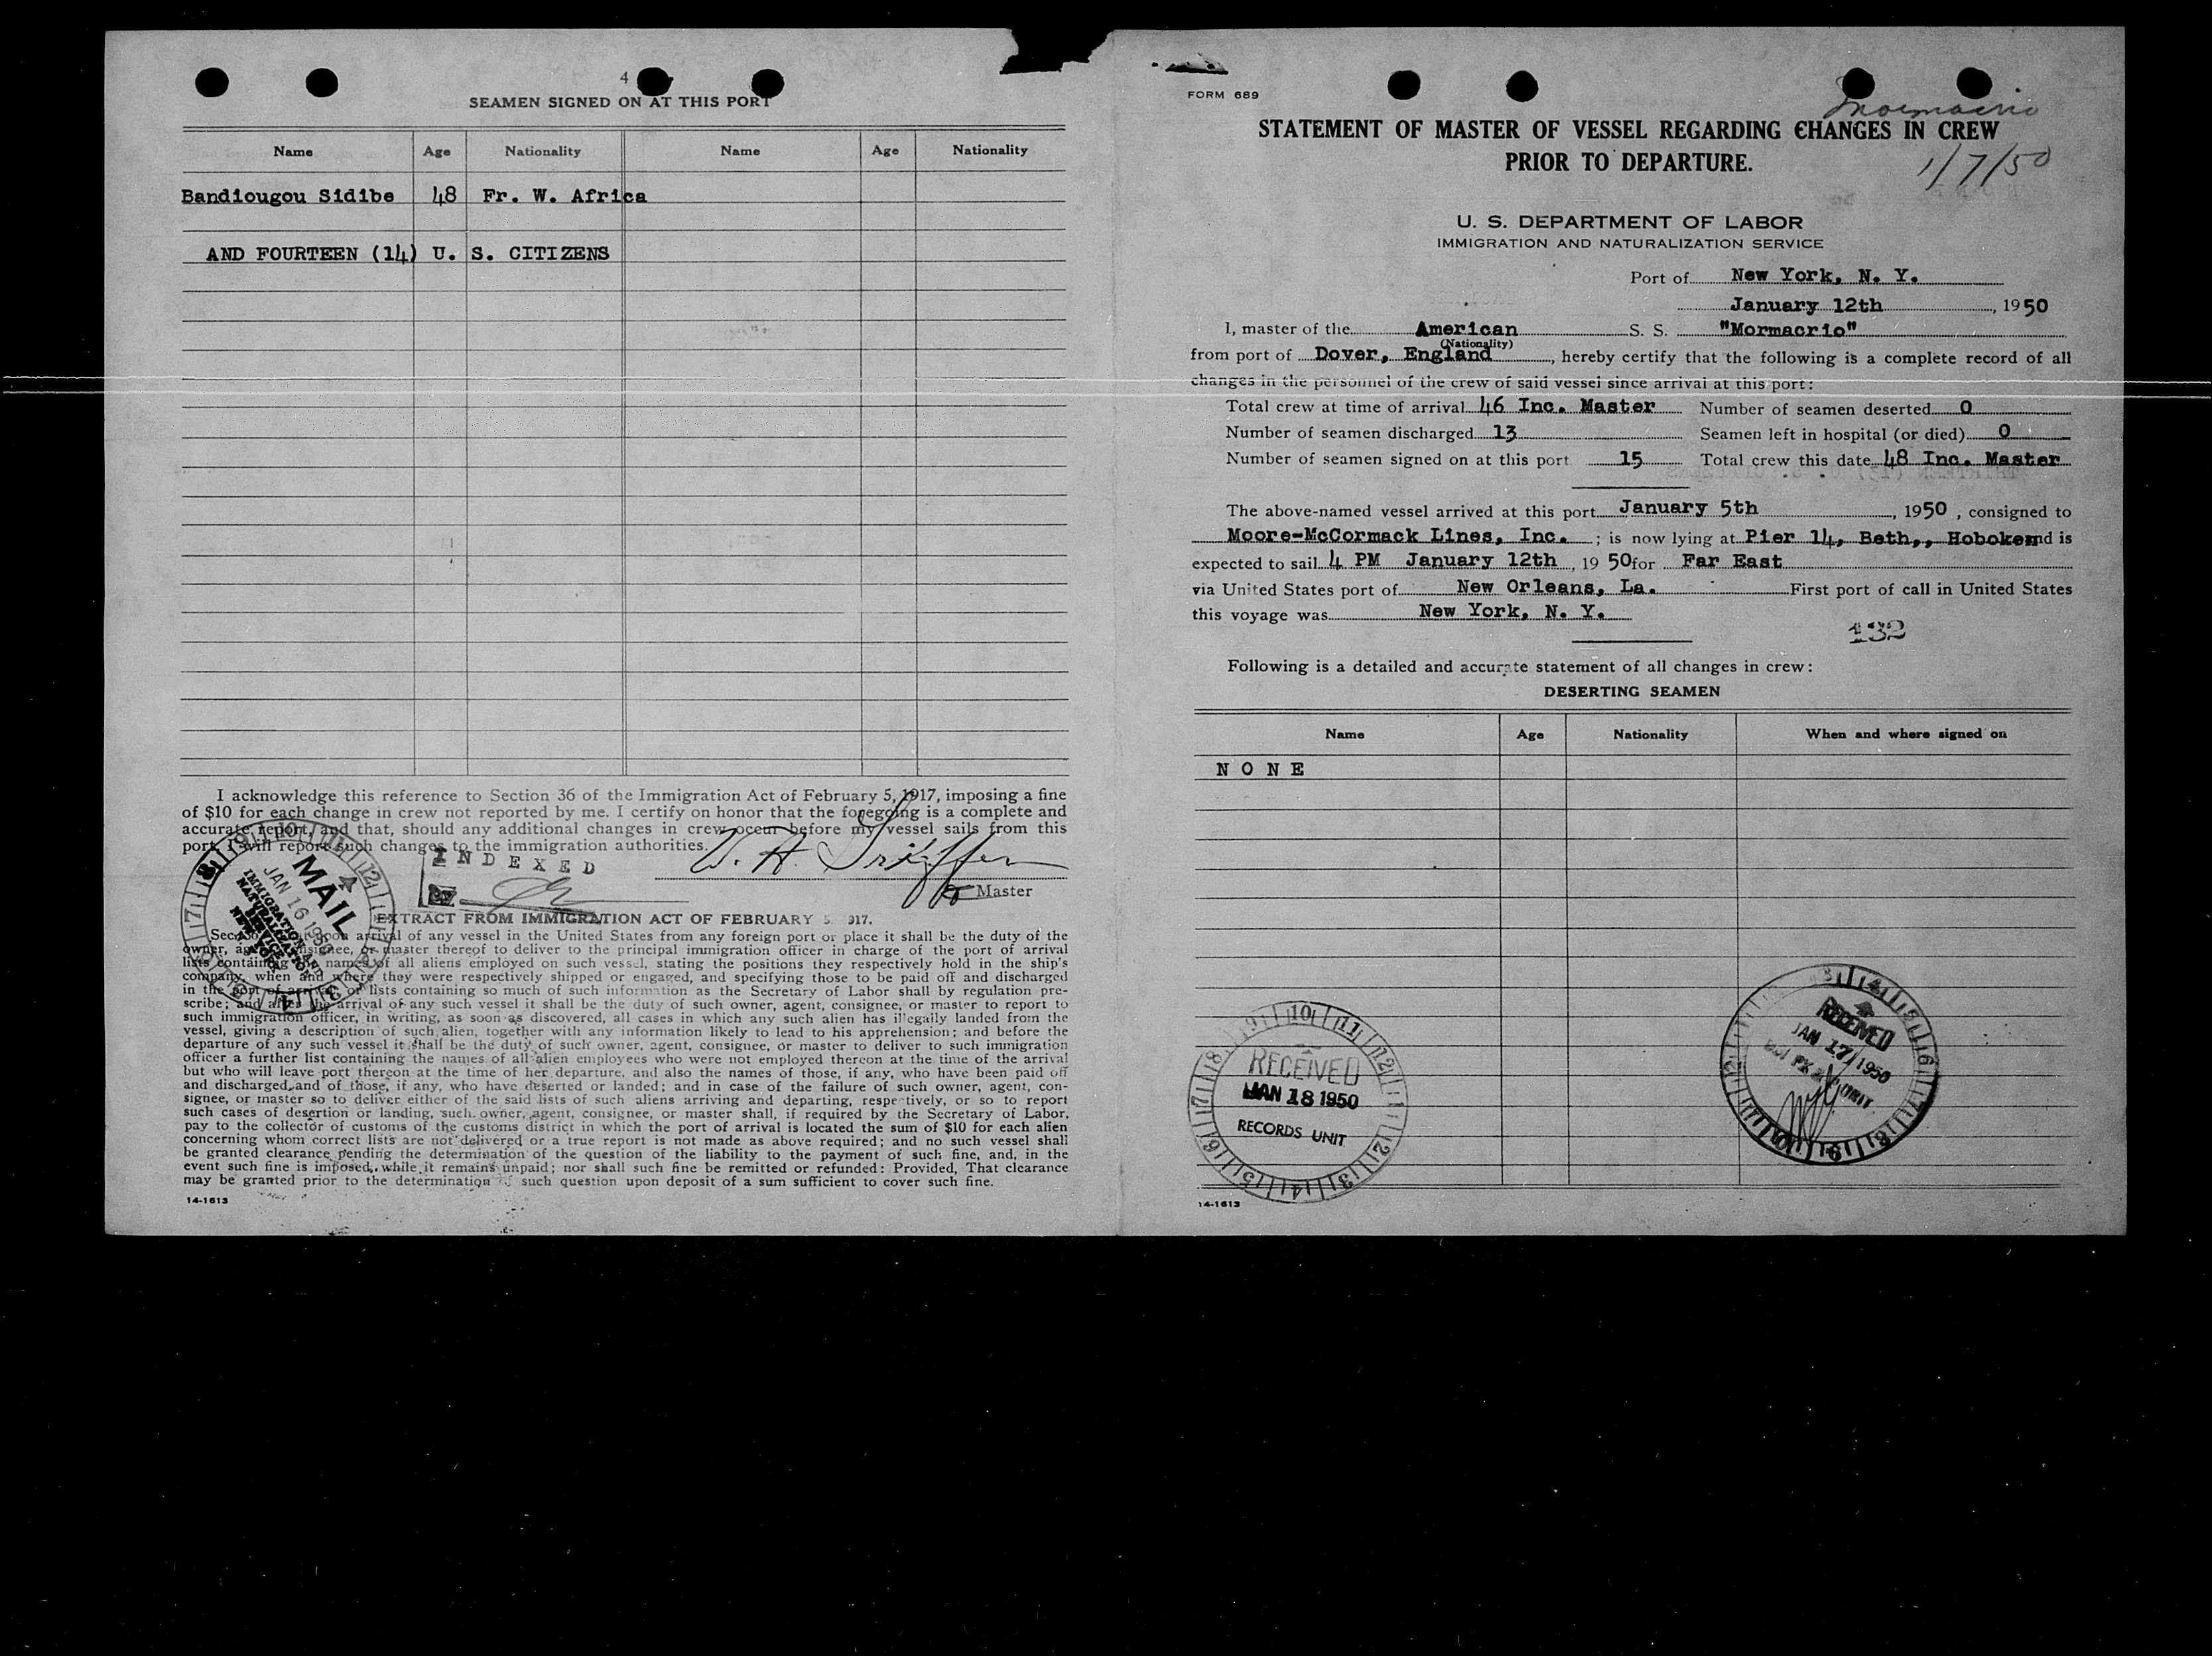 4
SEAMEN SIGNED ON AT THIS PORT
Name Age Nationality Name Age Nationality
Bandiougou Sidibe 48 Fr. W. Africa
AND FOURTEEN (14) U. S. CITIZENS
I acknowledge this reference to Section 36 of the Immigration Act of February 5, 1917, imposing a fine
of $10 for each change in crew not reported by me. I certify on honor that the foregoing is a complete and
accurate report, and that, should any additional changes in crew occur before my vessel sails from this
port, I will report such changes to the immigration authorities.
INDEXED
Master
MAIL
JAN 16 1950
IMMIGRATION AND
NATURALIZATION
SERVICE
NEW YORK
EXTRACT FROM IMMIGRATION ACT OF FEBRUARY 5 917.
Sec. upon arrival of any vessel in the United States from any foreign port or place it shall be the duty of the
owner, agent, consignee, or master thereof to deliver to the principal immigration officer in charge of the port of arrival
lists containing names of all aliens employed on such vessel, stating the positions they respectively hold in the ship's
company, when and where they were respectively shipped or engaged, and specifying those to be paid off and discharged
in the port of arrival or lists containing so much of such information as the Secretary of Labor shall by regulation pre-
scribe; and after the arrival of any such vessel it shall be the duty of such owner, agent, consignee, or master to report to
such immigration officer, in writing, as soon as discovered, all cases in which any such alien has illegally landed from the
vessel, giving a description of such alien, together with any information likely to lead to his apprehension; and before the
departure of any such vessel it shall be the duty of such owner, agent, consignee, or master to deliver to such immigration
officer a further list containing the names of all alien employees who were not employed thereon at the time of the arrival
but who will leave port thereon at the time of her departure, and also the names of those, if any, who have been paid off
and discharged, and of those, if any, who have deserted or landed; and in case of the failure of such owner, agent, con-
signee, or master so to deliver either of the said lists of such aliens arriving and departing, respectively, or so to report
such cases of desertion or landing, such owner, agent, consignee, or master shall, if required by the Secretary of Labor,
pay to the collector of customs of the customs district in which the port of arrival is located the sum of $10 for each alien
concerning whom correct lists are not delivered or a true report is not made as above required; and no such vessel shall
be granted clearance pending the determination of the question of the liability to the payment of such fine, and, in the
event such fine is imposed, while it remains unpaid; nor shall such fine be remitted or refunded: Provided, That clearance
may be granted prior to the determination of such question upon deposit of a sum sufficient to cover such fine.
14-1613
FORM 689
Mormacrio
STATEMENT OF MASTER OF VESSEL REGARDING CHANGES IN CREW
PRIOR TO DEPARTURE.
1/7/50
U. S. DEPARTMENT OF LABOR
IMMIGRATION AND NATURALIZATION SERVICE
Port of New York, N. Y.
January 12th, 1950
I, master of the American S. S. "Mormacrio"
(Nationality)
from port of Dover, England, hereby certify that the following is a complete record of all
changes in the personnel of the crew of said vessel since arrival at this port:
Total crew at time of arrival 46 Inc. Master Number of seamen deserted 0
Number of seamen discharged 13 Seamen left in hospital (or died) 0
Number of seamen signed on at this port 15 Total crew this date 48 Inc. Master
The above-named vessel arrived at this port January 5th, 1950, consigned to
Moore-McCormack Lines, Inc. ; is now lying at Pier 14, Beth,, Hoboken and is
expected to sail 4 PM January 12th, 1950 for Far East
via United States port of New Orleans, La. First port of call in United States
this voyage was New York, N. Y.
132
Following is a detailed and accurate statement of all changes in crew:
DESERTING SEAMEN
Name Age Nationality When and where signed on
NONE
RECEIVED
JAN 18 1950
RECORDS UNIT
RECEIVED
JAN 17 1950
14-1613